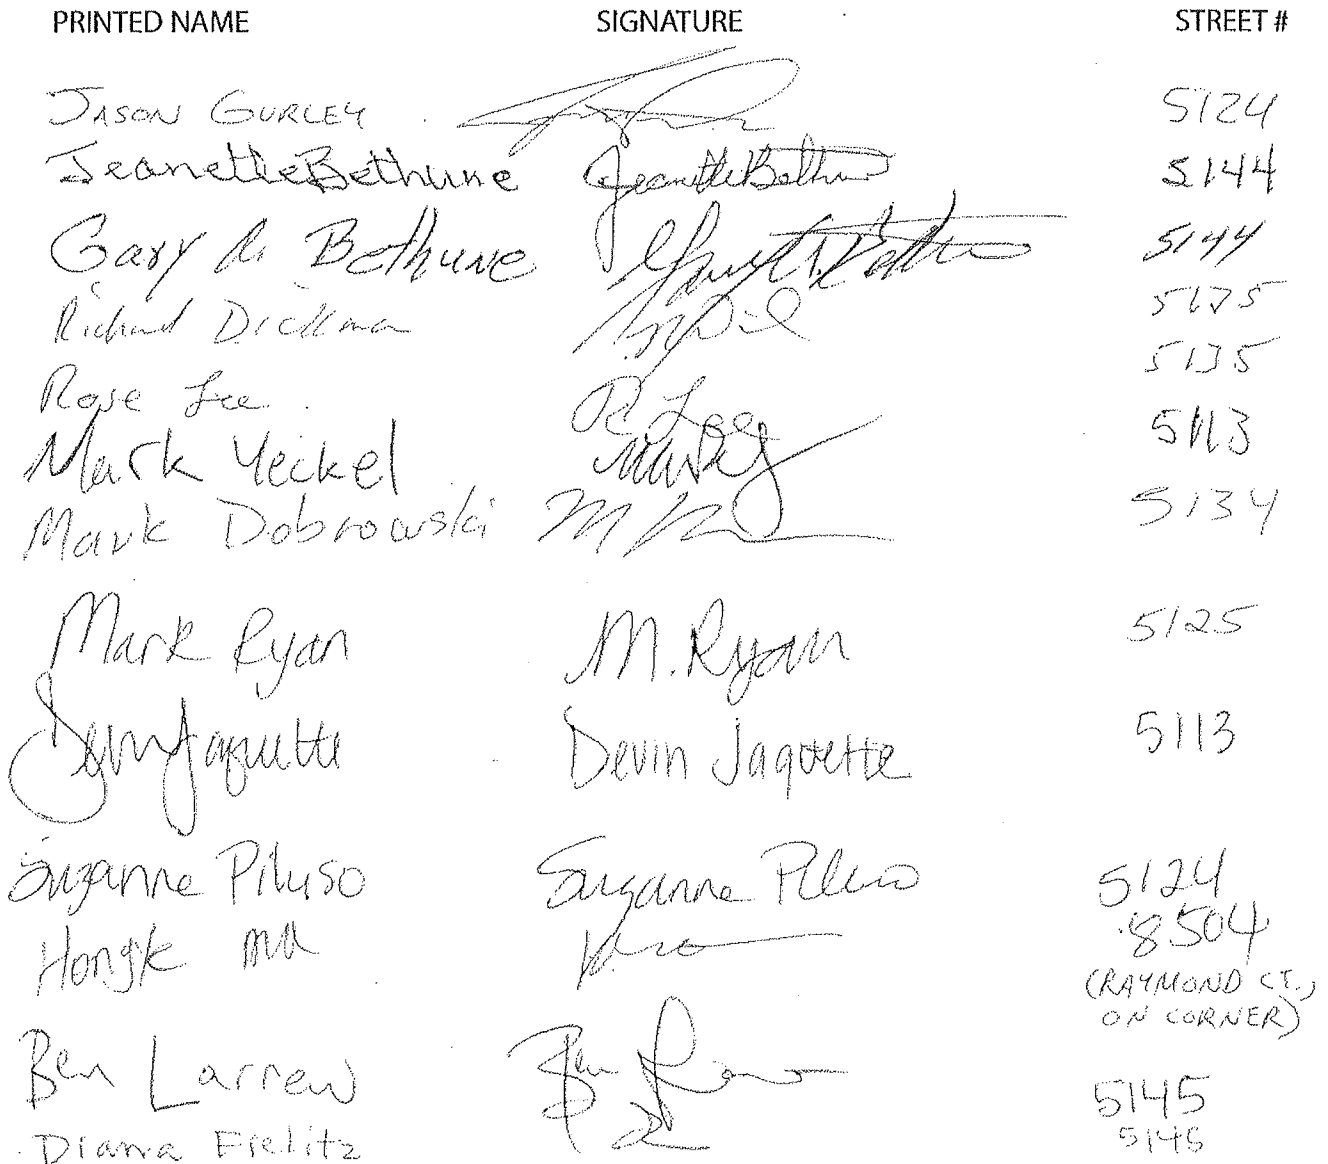 PRINTED NAME SIGNATURE STREET #
JASON GURLEY 5124
Jeanette Bethune Jeanette Bethune 5144
Gary A. Bethune Gary A. Bethune 5144
Richard Dickman 5125
Rose Lee R Lee 5135
Mark Yeckel 5113
Mark Dobrowski 5134
Mark Ryan M. Ryan 5125
Devin Jaquette Devin Jaquette 5113
Suzanne Piluso Suzanne Piluso 5124
Hongk Ma 8504
(RAYMOND CT.,
ON CORNER)
Ben Larrew Ben 5145
Diana Fielitz 5145